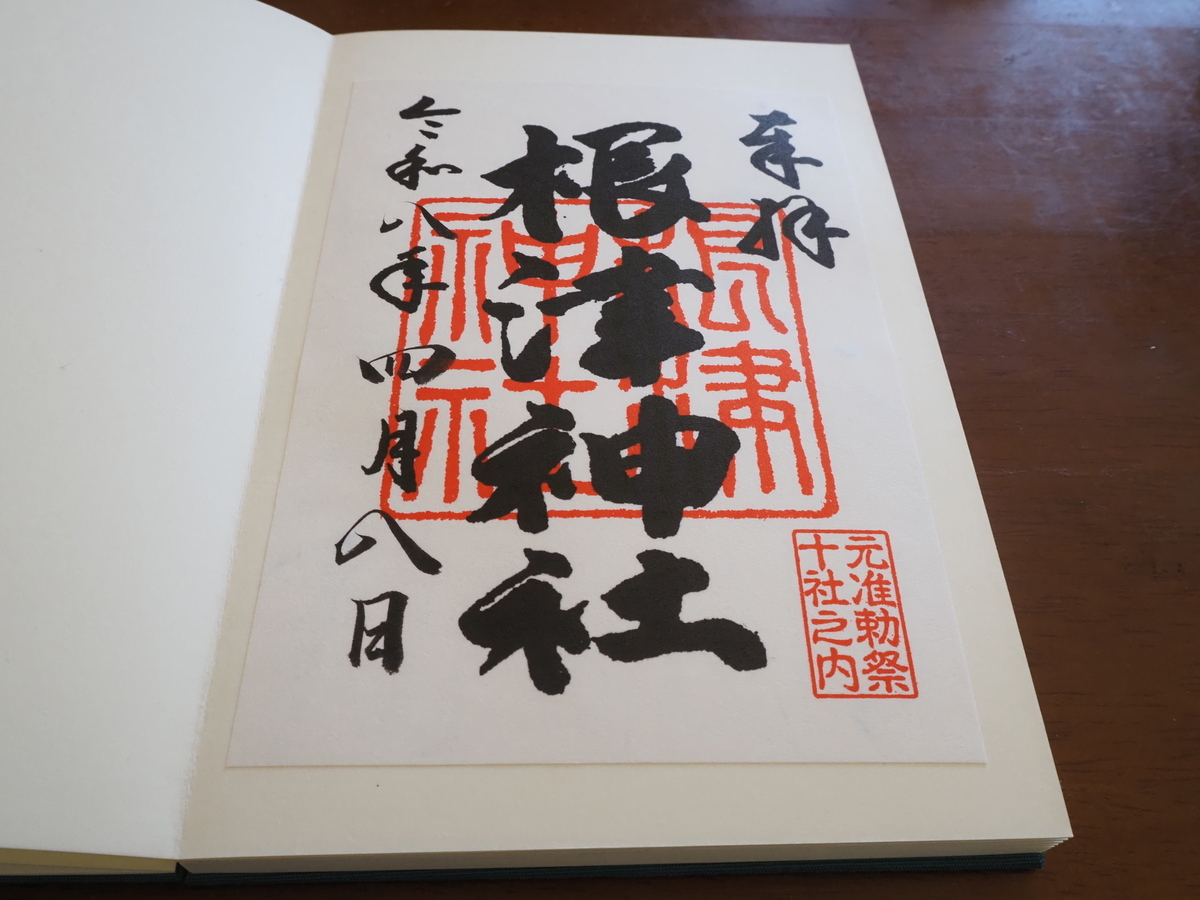 奉拝
根津神社
令和八年四月八日
根津
神社
元准勅祭
十社之内